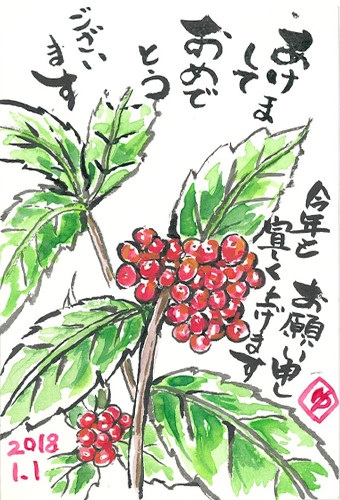 あけま
して
おめで
とう
ござい
ます
今年も
宜しく
お願い申し
上げます
2018
1.1